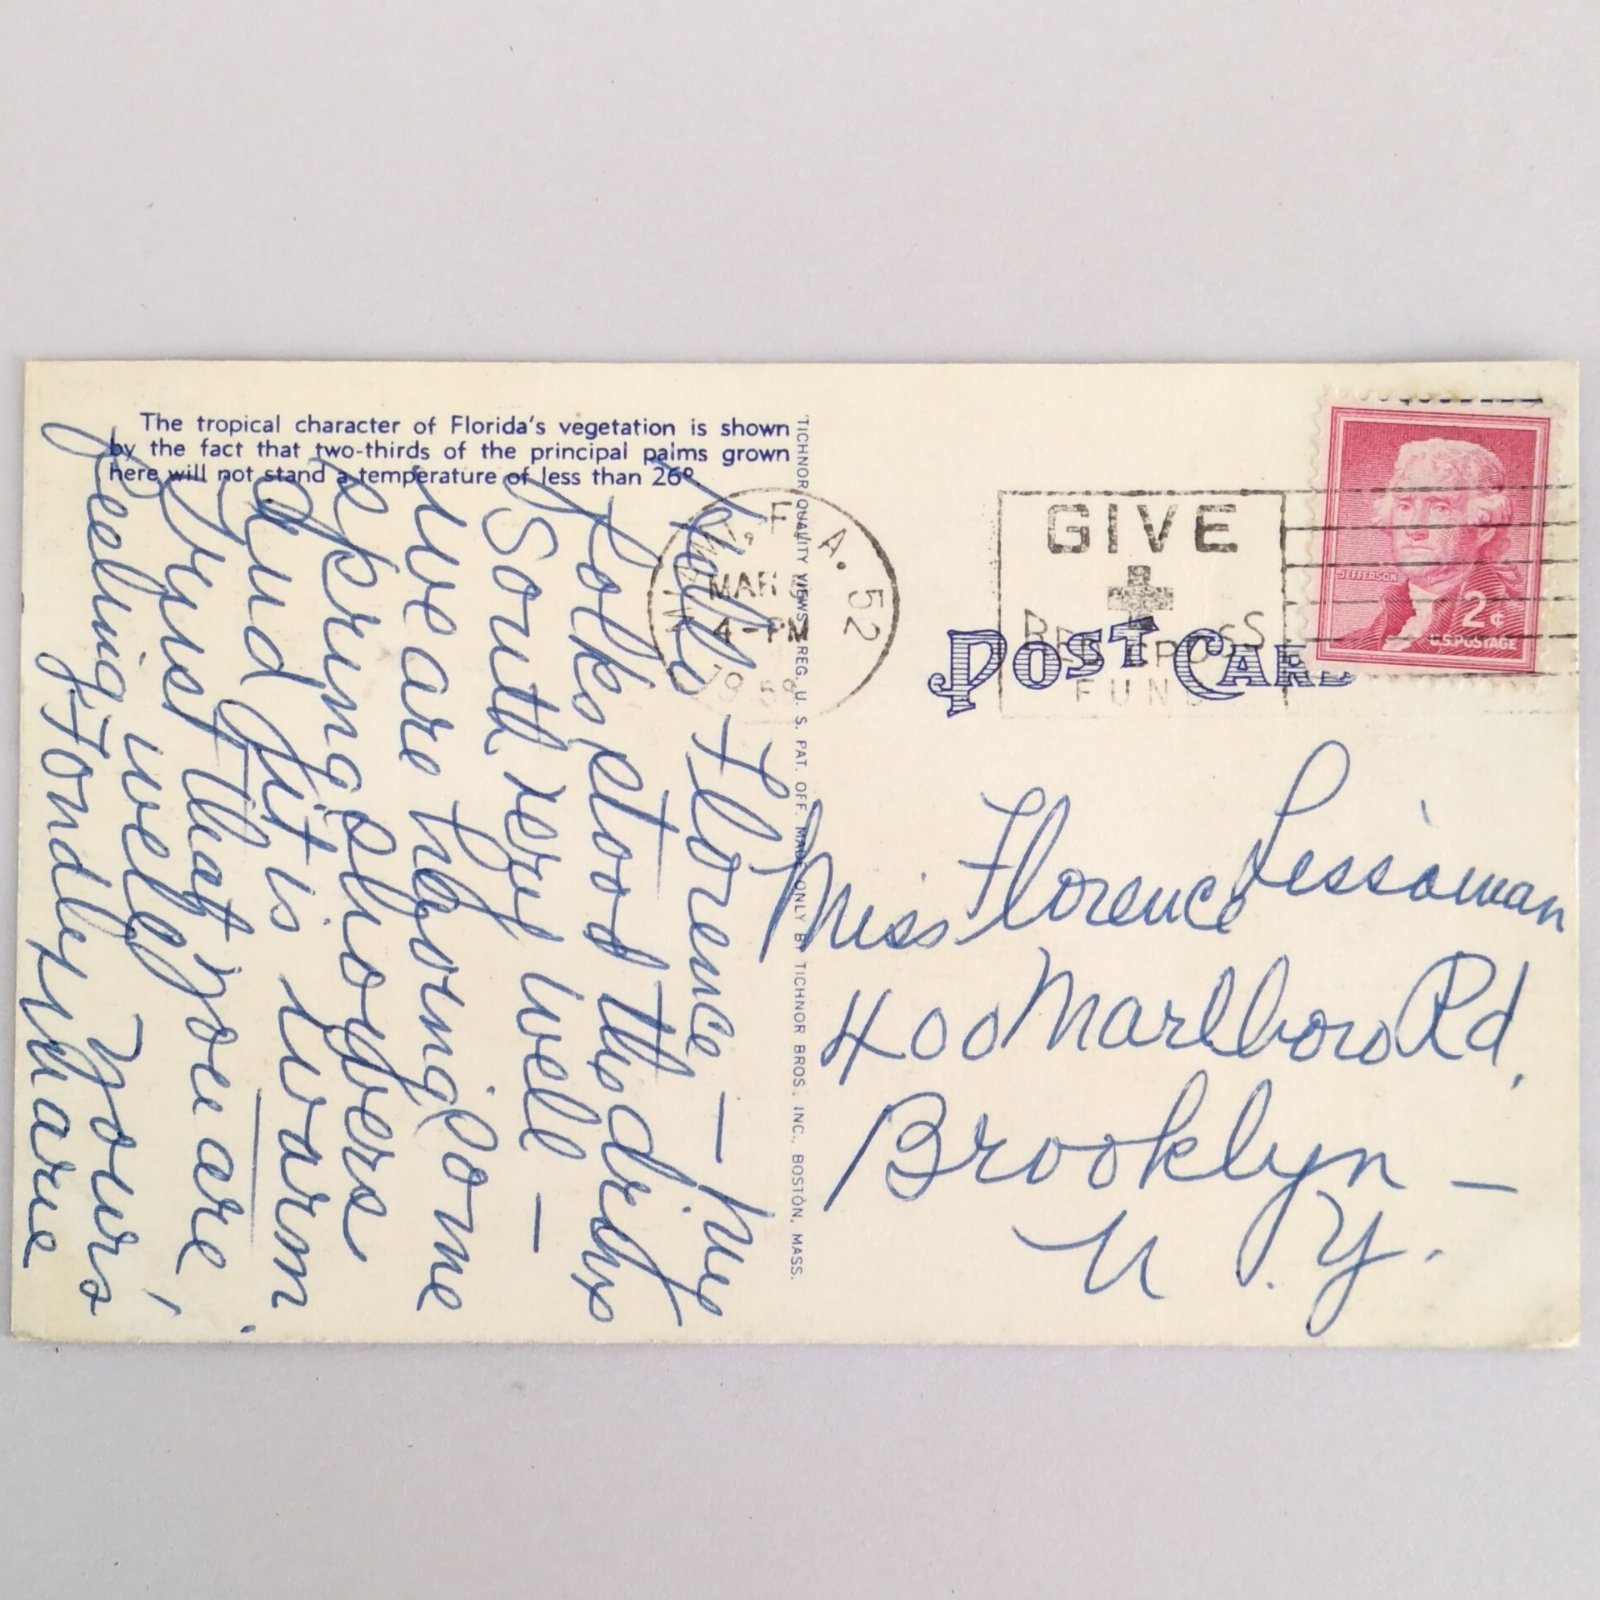 The tropical character of Florida's vegetation is shown
by the fact that two-thirds of the principal palms grown
here will not stand a temperature of less than 26°
Hello Florence — My
Folks stood the drive
South very well —
We are having some
spring showers
and yet is warm
Trust that you are
feeling well, Yours
Fondly, Marie
TICHNOR QUALITY VIEWS REG. U. S. PAT. OFF. MADE ONLY BY TICHNOR BROS., INC., BOSTON, MASS.
MIAMI, FLA. 52
MAR 5
4-PM
1958
GIVE
RED CROSS
FUND
POST CARD
JEFFERSON
2¢
U.S. POSTAGE
Miss Florence
400 Marlboro Rd,
Brooklyn —
N. Y.